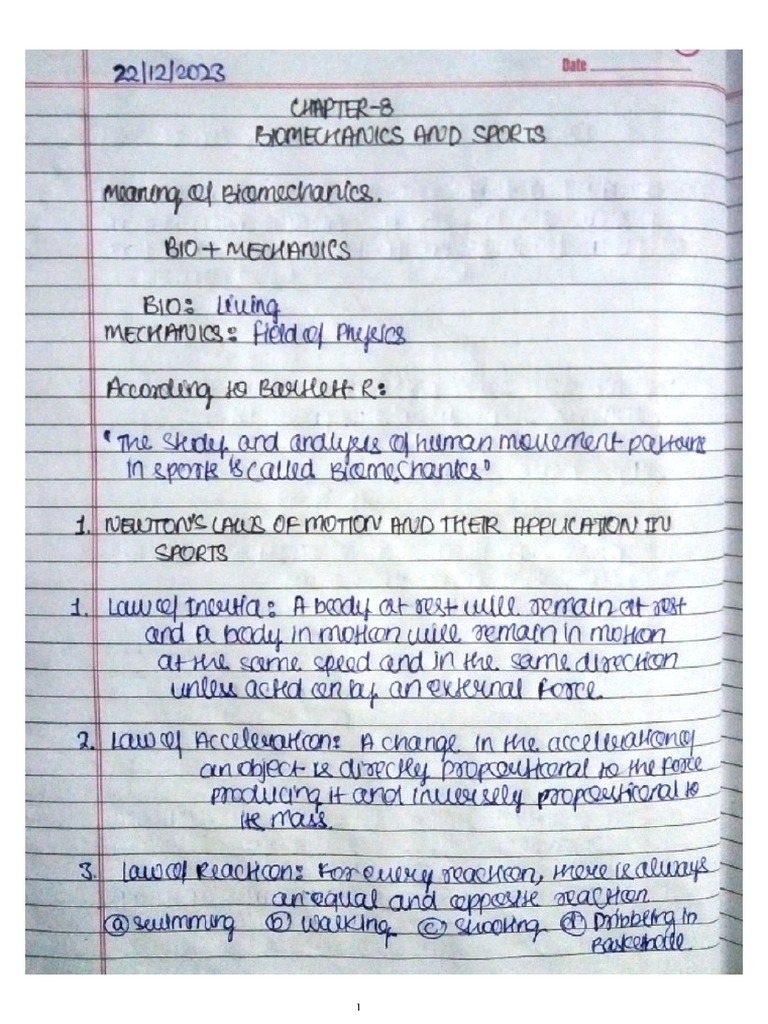 22/12/2023
Date
CHAPTER-8
BIOMECHANICS AND SPORTS
Meaning of Biomechanics.
BIO + MECHANICS
BIO: Living
MECHANICS: Field of Physics
According to Bartlett R:
"The study and analysis of human movement patterns
in sports is called Biomechanics"
1. NEWTON'S LAWS OF MOTION AND THEIR APPLICATION IN
SPORTS
1. Law of Inertia: A body at rest will remain at rest
and a body in motion will remain in motion
at the same speed and in the same direction
unless acted on by an external force.
2. Law of Acceleration: A change in the acceleration of
an object is directly proportional to the force
producing it and inversely proportional to
its mass.
3. Law of Reaction: For every reaction, there is always
an equal and opposite reaction
(a) swimming (b) walking (c) shooting (d) Dribbling in
Basketball
1